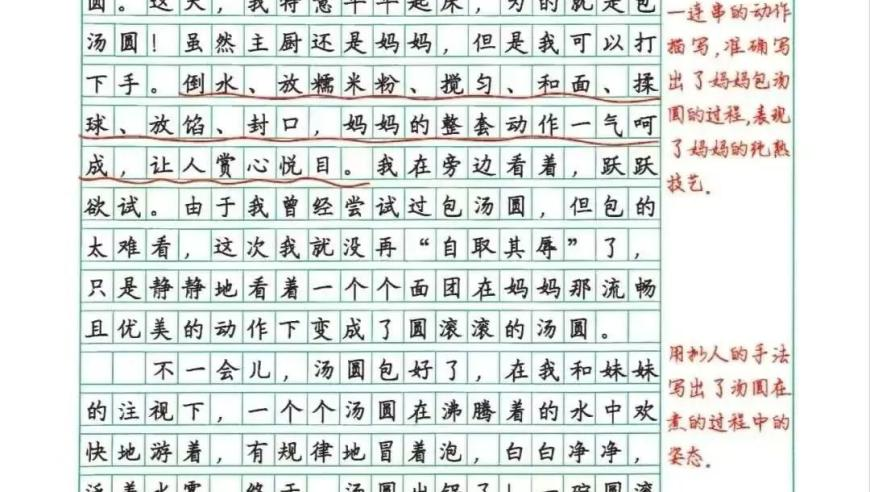 圆。这天，我特意早早起床，为的就是包
汤圆！虽然主厨还是妈妈，但是我可以打
下手。倒水、放糯米粉、搅匀、和面、揉
球、放馅、封口，妈妈的整套动作一气呵
成，让人赏心悦目。我在旁边看着，跃跃
欲试。由于我曾经尝试过包汤圆，但包的
太难看，这次我就没再“自取其辱”了，
只是静静地看着一个个面团在妈妈那流畅
且优美的动作下变成了圆滚滚的汤圆。
不一会儿，汤圆包好了，在我和妹妹
的注视下，一个个汤圆在沸腾着的水中欢
快地游着，有规律地冒着泡，白白净净，
浮着水雾。终于，汤圆出锅了！一碗圆滚
一连串的动作
描写，准确写
出了妈妈包汤
圆的过程，表现
了妈妈的纯熟
技艺。
用拟人的手法
写出了汤圆在
煮的过程中的
姿态。